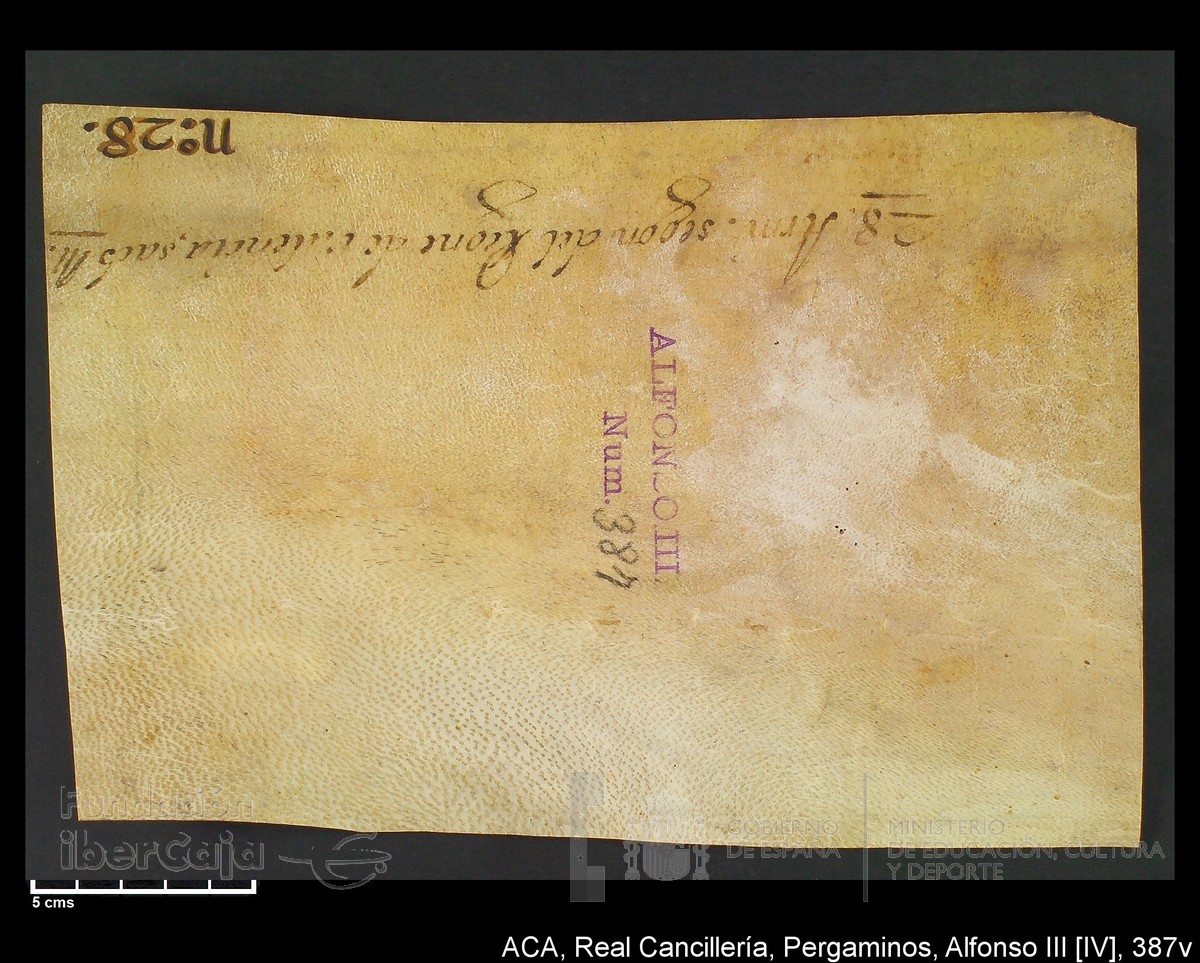 nº: 28.
28. Arm. segon del Regne de Valencia, sach M.
ALFONSO III
Num. 387
Fundación
iberCaja
GOBIERNO
DE ESPAÑA
MINISTERIO
DE EDUCACIÓN, CULTURA
Y DEPORTE
5 cms
ACA, Real Cancillería, Pergaminos, Alfonso III [IV], 387v